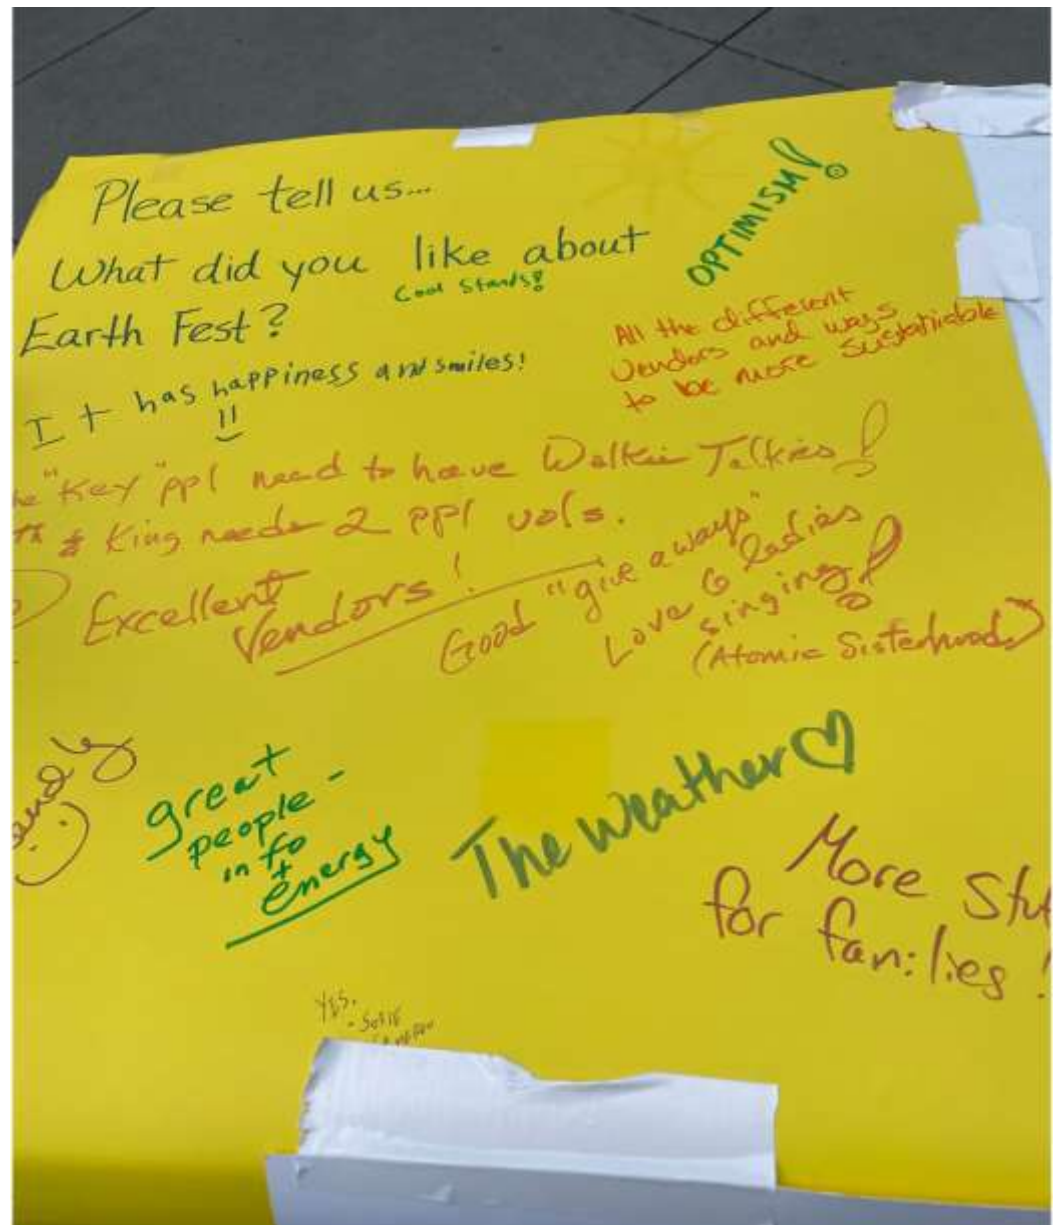 Please tell us...
What did you like about
Earth Fest?
Cool Stands!
OPTIMISM!
It has happiness and smiles!
All the different
vendors and ways
to be more sustainable
"Key" ppl need to have Walkie Talkies!
& King needs 2 ppl vols.
Excellent
Vendors!
Good "give aways"
Love 6 ladies
singing!
(Atomic Sisterhood)
great
people -
info
+
energy
The weather
More
for families!
YES.
- SOFIE